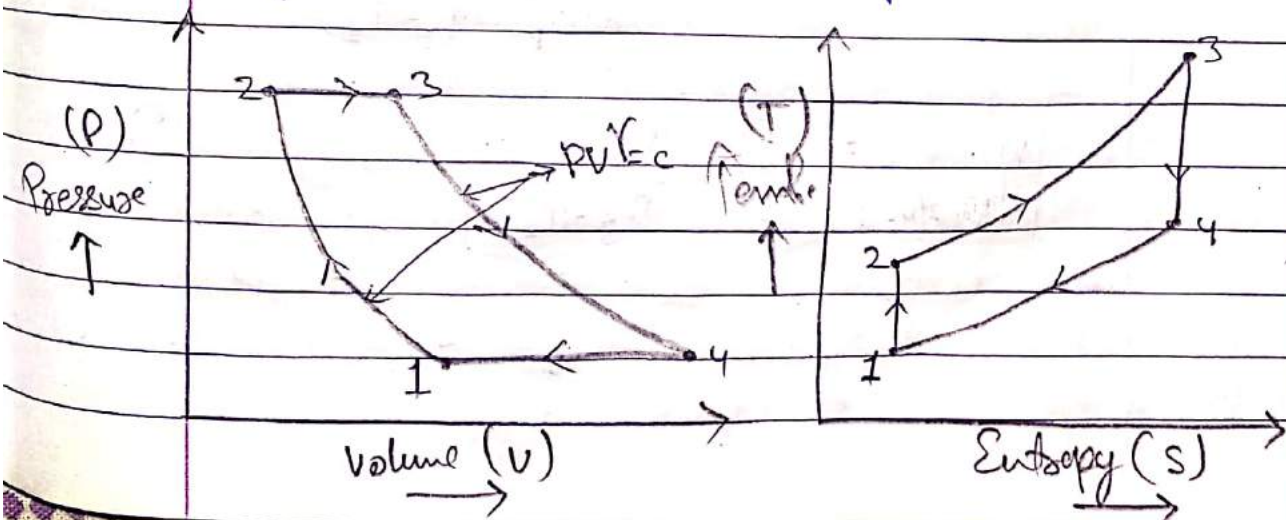 2 3
(P)
Pressure
PVᵞ=c
1 4
Volume (V)
3
(T)
Tempe
4
2
1
Entropy (S)